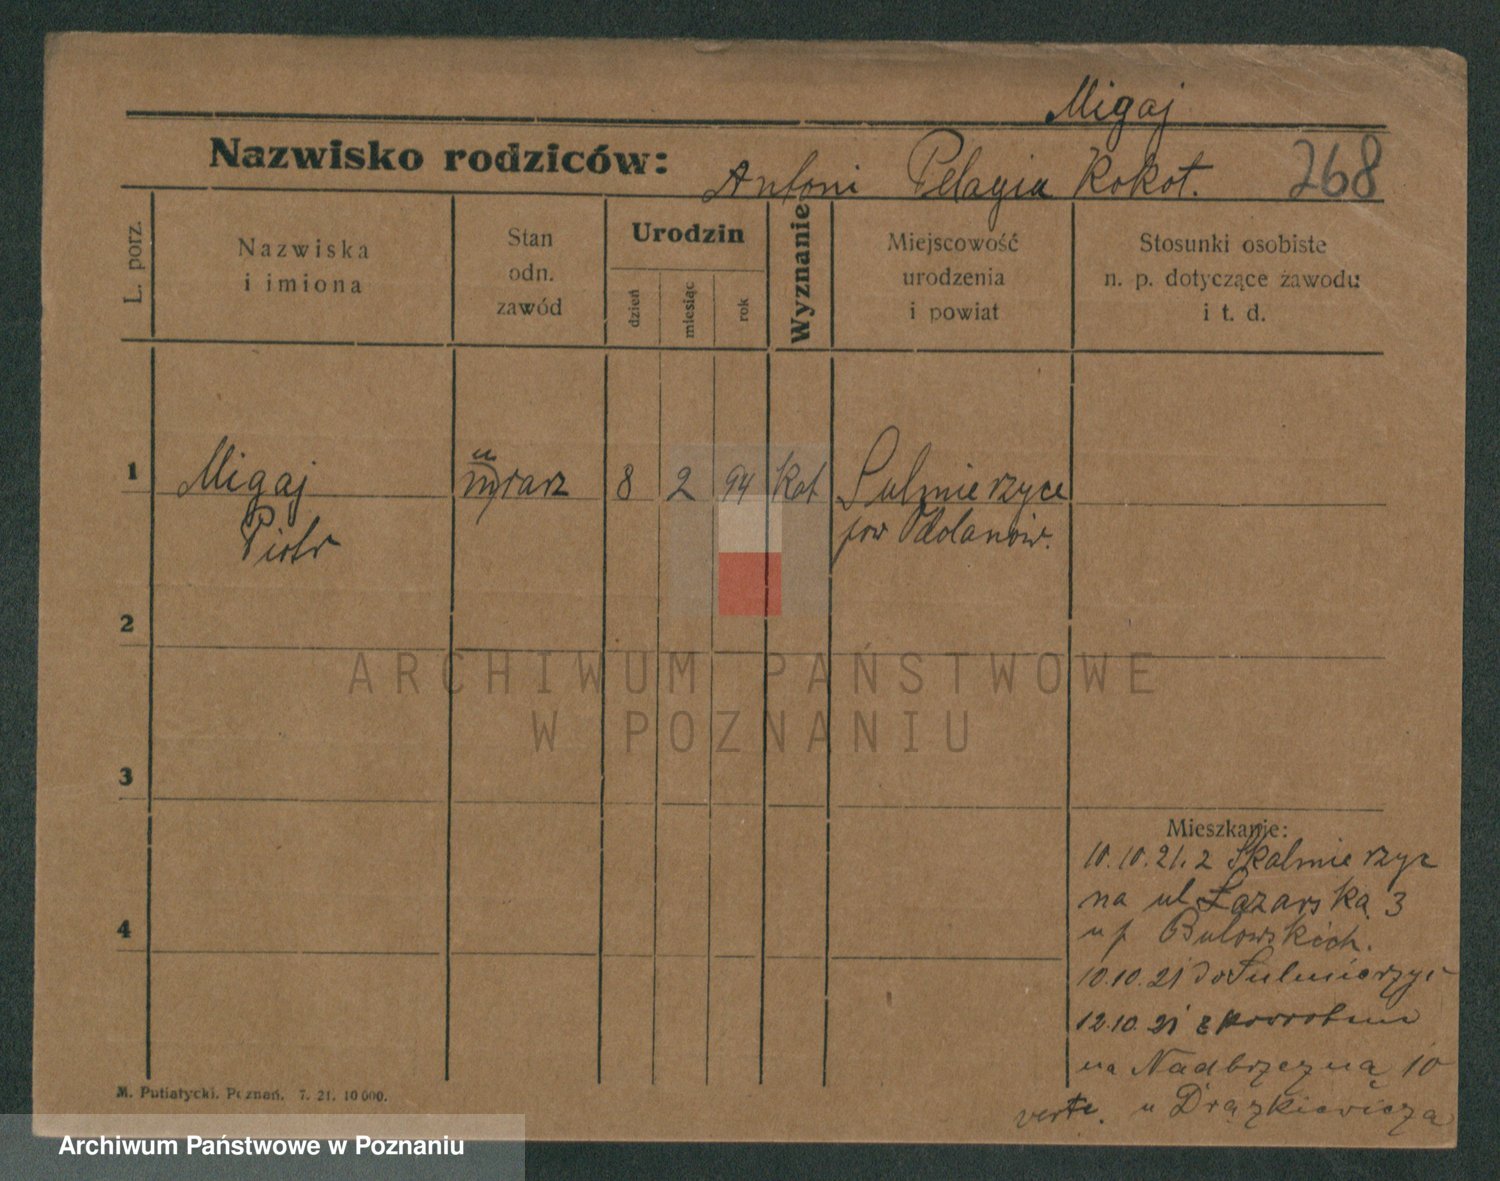 Migaj
Nazwisko rodziców: Antoni Pelagia Kokot.
268
L. porz.
Nazwiska
i imiona
Stan
odn.
zawód
Urodzin
dzień
miesiąc
rok
Wyznanie
Miejscowość
urodzenia
i powiat
Stosunki osobiste
n. p. dotyczące zawodu
i t. d.
1
Migaj
Piotr
murarz
8
2
94
Kat
Sulmierzyce
pow Odolanów.
2
3
4
Mieszkanie:
10.10.21. z Skalmierzyc
na ul Łazarska 3
u p Bulowskich.
10.10.21 do Sulmierzyc
12.10 21 z powrotem
na Nadbrzeżną 10
verte. u Drążkiewicza
M. Putiatycki. Poznań. 7. 21. 10 000.
ARCHIWUM PAŃSTWOWE
W POZNANIU
Archiwum Państwowe w Poznaniu